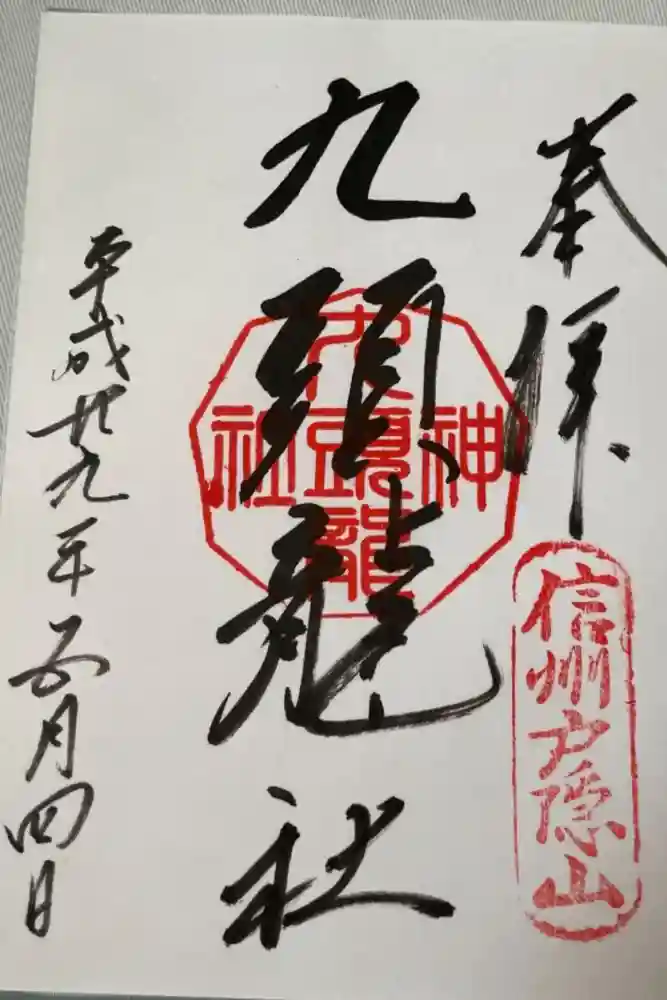 奉拝
信州戸隠山
九頭龍社
九頭龍神社
平成廿九年五月四日